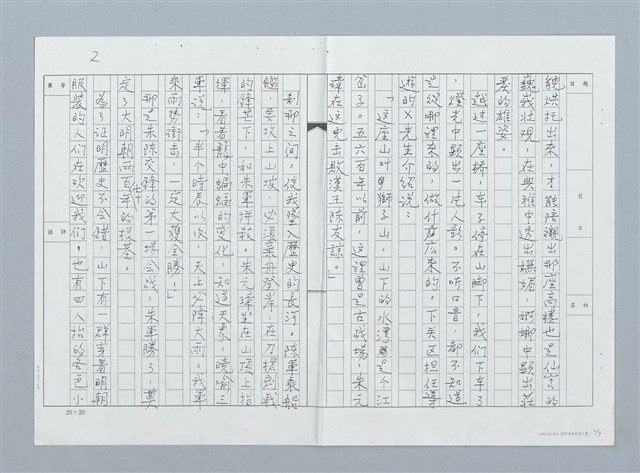 2
貌烘托出來，才能陪襯出那座高樓也是仙宮的
巍峩壯觀，在典雅中透出嫵媚，婀娜中顯出莊
美的雄姿。
越过一座橋，車子停在山脚下，我们下車了
，燈光中顯出一片人影。不听口音，都不知道
是從哪裡來的，做什麼來的。下关区担任導
遊的X先生介紹說：
「这座山叫獅子山，山下的水灣是个江
岔子。五六百年以前，这裡曾是古战場，朱元
璋在这兒击敗漢王陳友諒。」
剎那之间，使我墜入歷史的長河。陳軍乘船
艦，要攻上山坡，必須棄舟登岸，在刀槍劍戟
的鋒芒下，和朱軍拼殺。朱元璋坐在山頂上指
揮，看着龍中蝙蝠的变化，知道天象，曉喻三
軍說：「半个時辰以次，天上必降大雨；我軍
乘雨勢衝击，一定大獲全勝！」
那之朱陳交鋒的第一場会战，朱軍勝了，奠
定了大明朝兩百七十年的根基。
為了证明歷史不会錯，山下有一群穿着明朝
服裝的人们在欢迎我们，也有四人抬的各色小
題目
月
日
姓名
第
字
評語
20×20